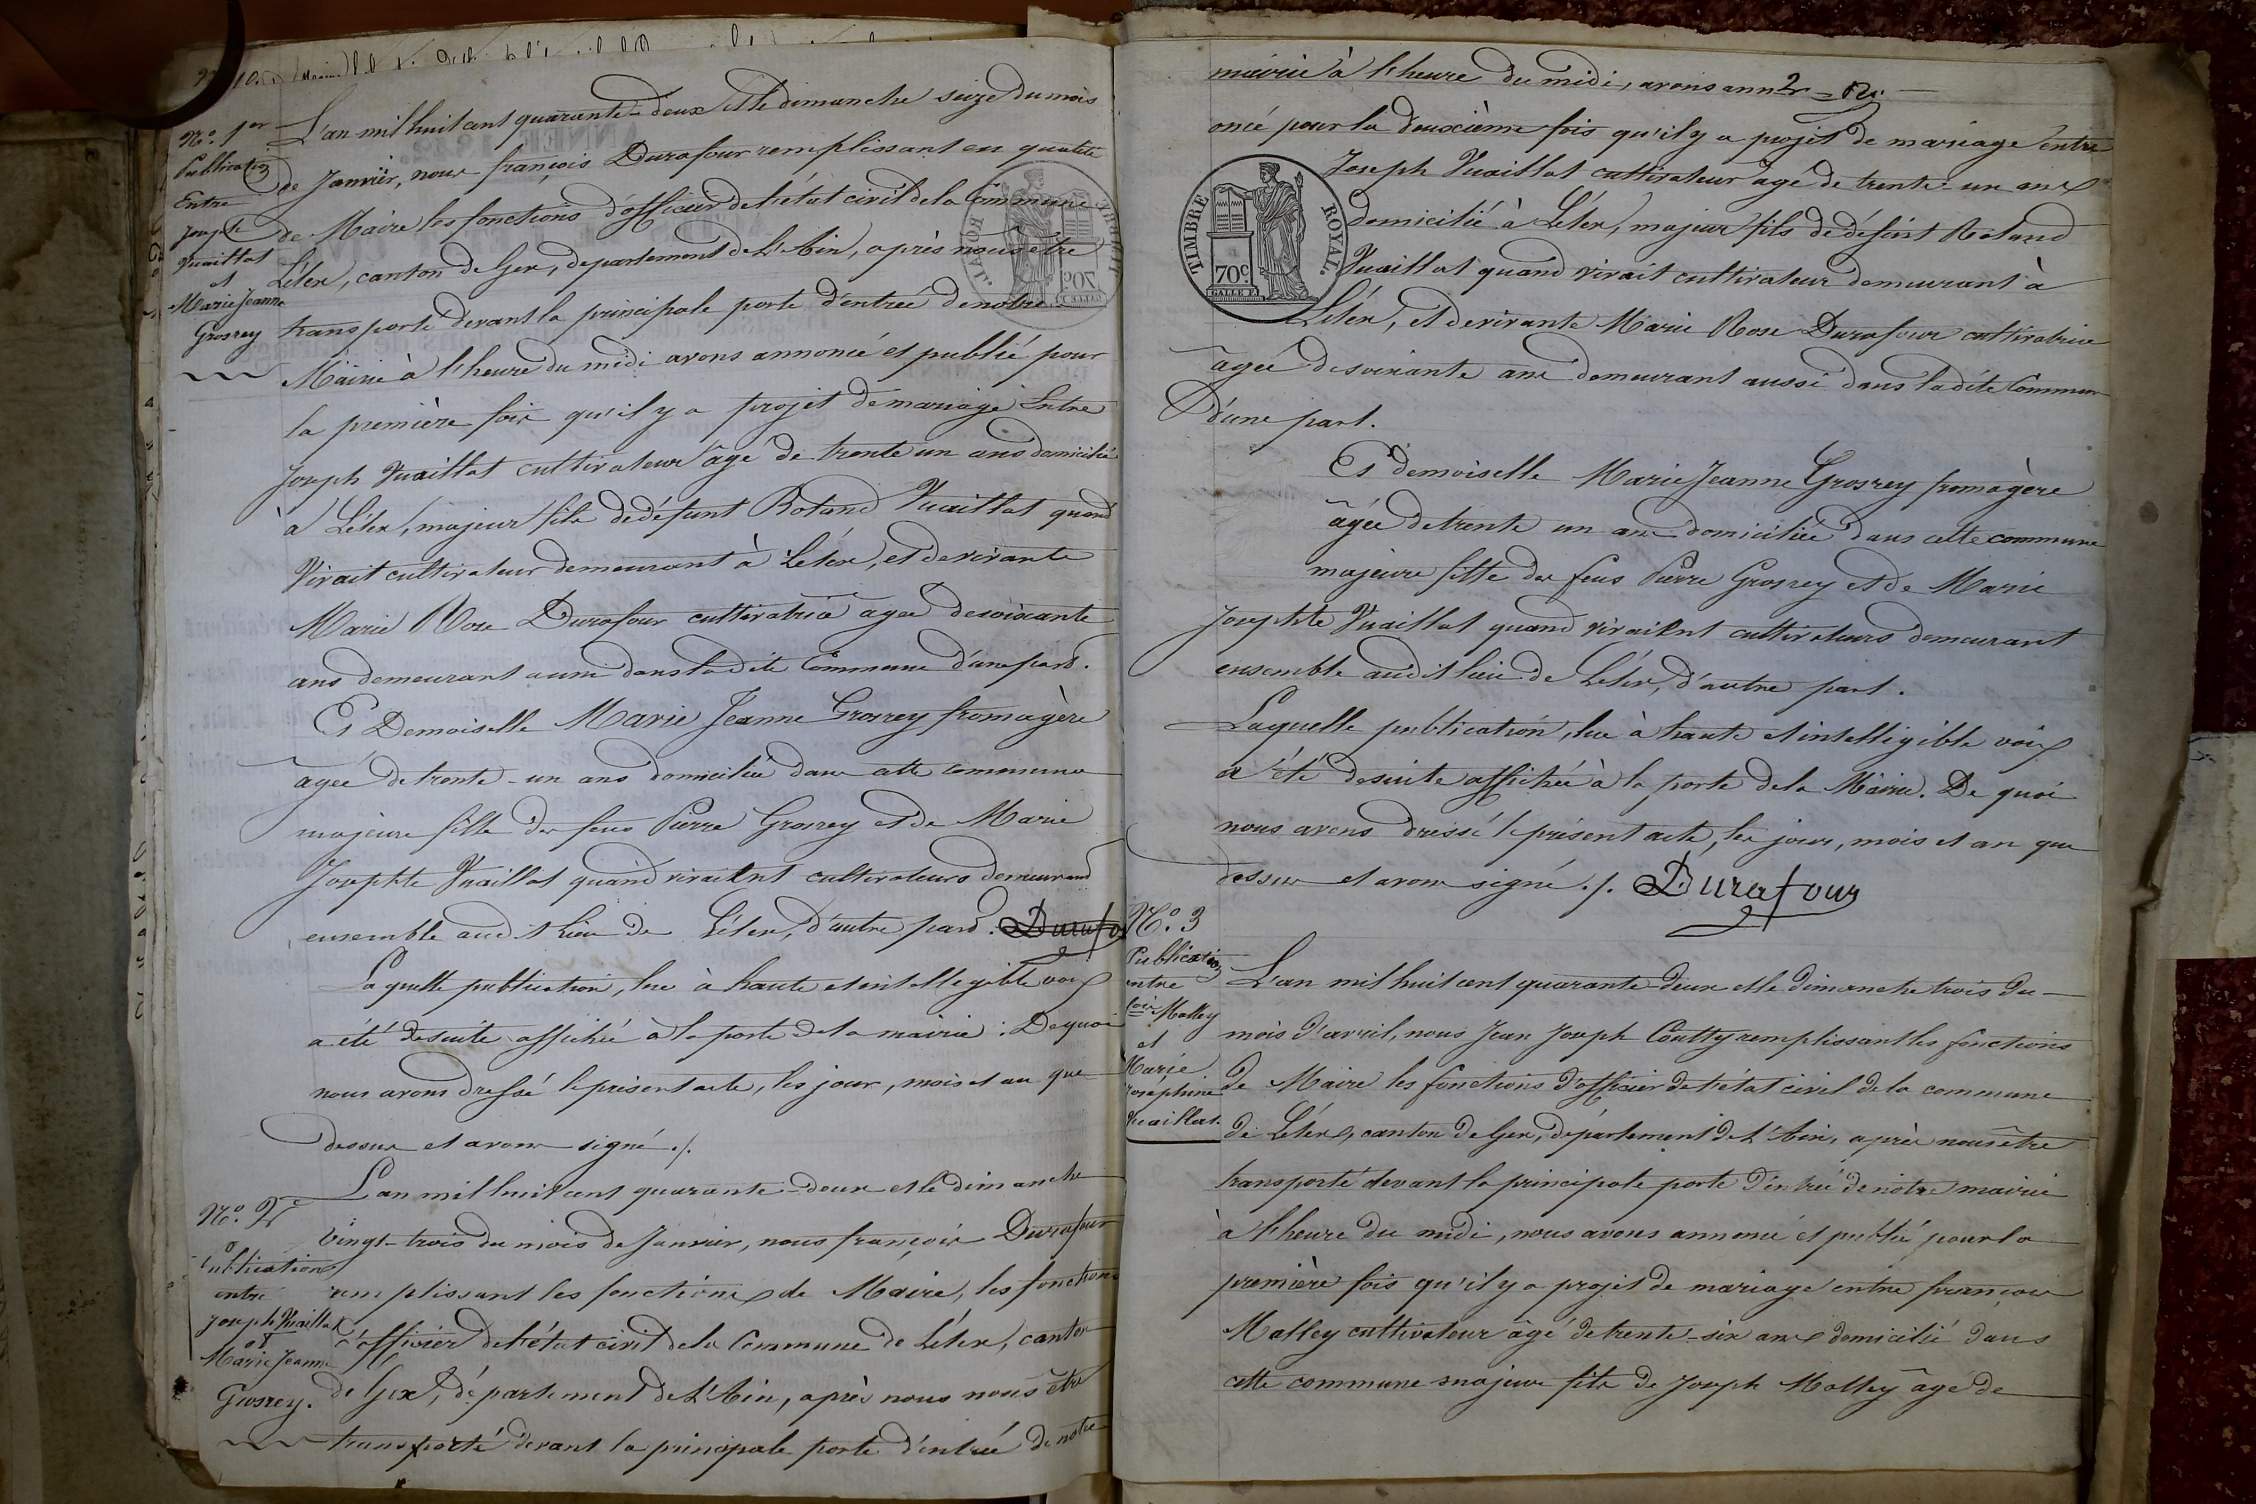 N.o 1er
Publication
Entre
Joseph
Vuaillat
et
Marie Jeanne
Grosrey
L'an mil huit cent quarante-deux et le dimanche seize du mois
de Janvier, nous françois Durafour remplissant en qualité
de Maire les fonctions d'officier de l'état civil de la Commune
Lélex, canton de Gex, département de l'Ain, après nous être
transporté devant la principale porte d'entrée de notre
Mairie à l'heure du midi avons annoncé et publié pour
la première fois qu'il y a projet de mariage Entre
Joseph Vuaillat cultivateur âgé de trente un ans domicilié
à Lélex, majeur fils de défunt Roland Vuaillat quand
Vivait cultivateur demeurant à Lélex, et de vivante
Marie Rose Durafour cultivatrice agée de soixante
ans demeurant aussi dans ladite Commune d'une part.
Et Demoiselle Marie Jeanne Grosrey fromagère
agée de trente-un ans domiciliée dans cette commune
majeure fille de feus Pierre Grosrey et de Marie
Josephte Vuaillat quand vivaient cultivateurs demeurant
ensemble audit Lieu de Lélex, d'autre part. Durafo
Laquelle publication, lue à haute et intelligible voix
a été de suite affichée à la porte de la mairie. De quoi
nous avons dressé le présent acte, les jour, mois et an que
dessus et avons signé ./.
N.o 2
Publication
entre
Joseph Vuaillat
et
Marie Jeanne
Grosrey.
L'an mil huit cent quarante-deux et le dimanche
vingt-trois du mois de Janvier, nous françois Durafour
remplissant les fonctions de Maire, les fonctions
d'officier de l'état civil de la Commune de Lélex, canton
de Gex, département de l'Ain, après nous nous être
transporté devant la principale porte d'entrée de notre
mairie à l'heure du midi, avons ann
oncé pour la deuxième fois qu'il y a projet de mariage entre
Joseph Vuaillat cultivateur âgé de trente-un ans
domicilié à Lélex, majeur fils de défunt Roland
Vuaillat quand vivait cultivateur demeurant à
Lélex, et de vivante Marie Rose Durafour cultivatrice
agée de soixante ans demeurant aussi dans ladite Commune
D'une part.
TIMBRE ROYAL.
70c
Et demoiselle Marie Jeanne Grosrey fromagère
âgée de trente un ans domiciliée dans cette commune
majeure fille de feus Pierre Grosrey et de Marie
Josephte Vuaillat quand vivaient cultivateurs demeurant
ensemble audit lieu de Lélex, d'autre part.
Laquelle publication, lue à haute et intelligible voix
a été de suite affichée à la porte de la Mairie. De quoi
nous avons dressé le présent acte, les jour, mois et an que
dessus et avons signé ./. Durafour
N.o 3
Publication
entre
Malley
et
Marie
Joséphine
Vuaillat.
L'an mil huit cent quarante-deux et le dimanche trois du
mois d'avril, nous Jean Joseph Coutty remplissant les fonctions
de Maire les fonctions d'officier de l'état civil de la commune
de Lélex, canton de Gex, département de l'Ain, après nous être
transporté devant la principale porte d'entrée de notre mairie
à l'heure du midi, nous avons annoncé et publié pour la
première fois qu'il y a projet de mariage entre françois
Malley cultivateur âgé de trente-six ans domicilié dans
cette commune majeur fils de Joseph Malley âgé de